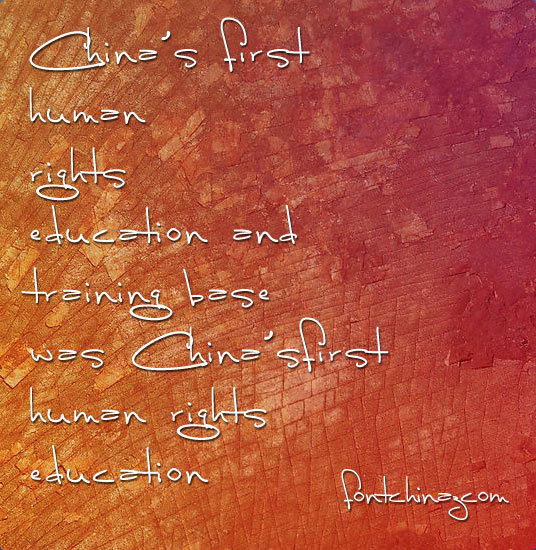 China's first
human
rights
education and
training base
was China'sfirst
human rights
education
fontchinazcom